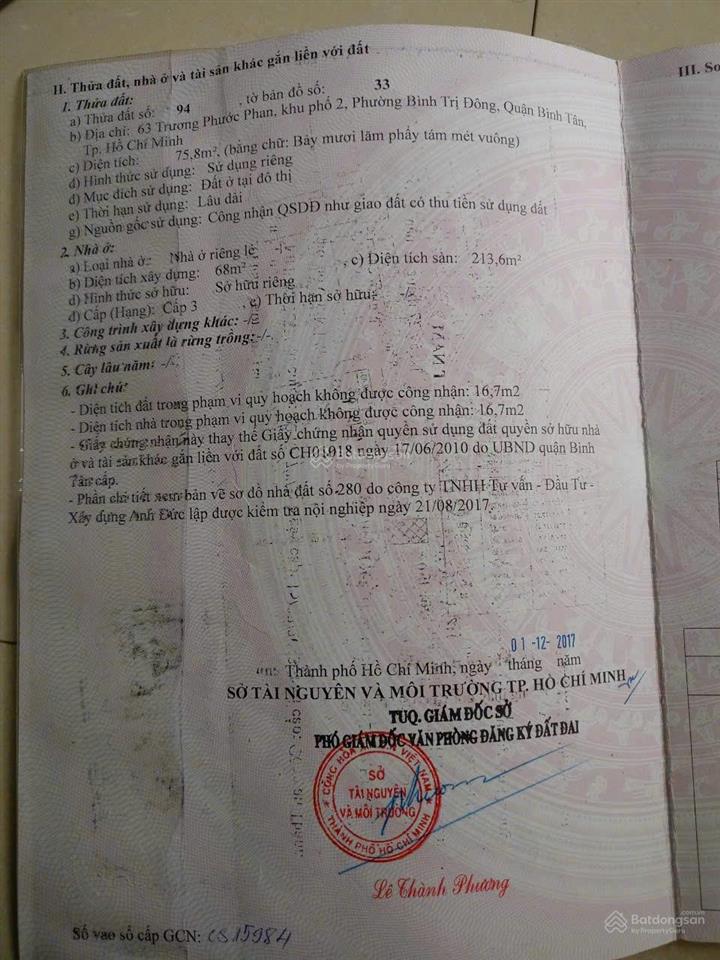 II. Thửa đất, nhà ở và tài sản khác gắn liền với đất
III. So
1. Thửa đất:
a) Thửa đất số: 94 , tờ bản đồ số: 33
b) Địa chỉ: 63 Trương Phước Phan, khu phố 2, Phường Bình Trị Đông, Quận Bình Tân,
Tp. Hồ Chí Minh
c) Diện tích: 75,8m², (bằng chữ: Bảy mươi lăm phẩy tám mét vuông)
d) Hình thức sử dụng: Sử dụng riêng
đ) Mục đích sử dụng: Đất ở tại đô thị
e) Thời hạn sử dụng: Lâu dài
g) Nguồn gốc sử dụng: Công nhận QSDĐ như giao đất có thu tiền sử dụng đất
2. Nhà ở:
a) Loại nhà ở: Nhà ở riêng lẻ
b) Diện tích xây dựng: 68m² , c) Diện tích sàn: 213,6m²
d) Hình thức sở hữu: Sở hữu riêng
đ) Cấp (Hạng): Cấp 3 , e) Thời hạn sở hữu: -/-
3. Công trình xây dựng khác: -/-
4. Rừng sản xuất là rừng trồng: -/-
5. Cây lâu năm: -/-
6. Ghi chú:
- Diện tích đất trong phạm vi quy hoạch không được công nhận: 16,7m2
- Diện tích nhà trong phạm vi quy hoạch không được công nhận: 16,7m2
- Giấy chứng nhận này thay thế Giấy chứng nhận quyền sử dụng đất quyền sở hữu nhà
ở và tài sản khác gắn liền với đất số CH01018 ngày 17/06/2010 do UBND quận Bình
Tân cấp.
- Phần chi tiết xem bản vẽ sơ đồ nhà đất số 280 do công ty TNHH Tư vấn - Đầu Tư -
Xây dựng Anh Đức lập được kiểm tra nội nghiệp ngày 21/08/2017.
01 -12- 2017
Thành phố Hồ Chí Minh, ngày tháng năm
SỞ TÀI NGUYÊN VÀ MÔI TRƯỜNG TP. HỒ CHÍ MINH
TUQ. GIÁM ĐỐC SỞ
PHÓ GIÁM ĐỐC VĂN PHÒNG ĐĂNG KÝ ĐẤT ĐAI
SỞ
TÀI NGUYÊN
VÀ MÔI TRƯỜNG
THÀNH PHỐ HỒ CHÍ MINH
Lê Thành Phương
Số vào sổ cấp GCN: CS15984
Batdongsan
by PropertyGuru